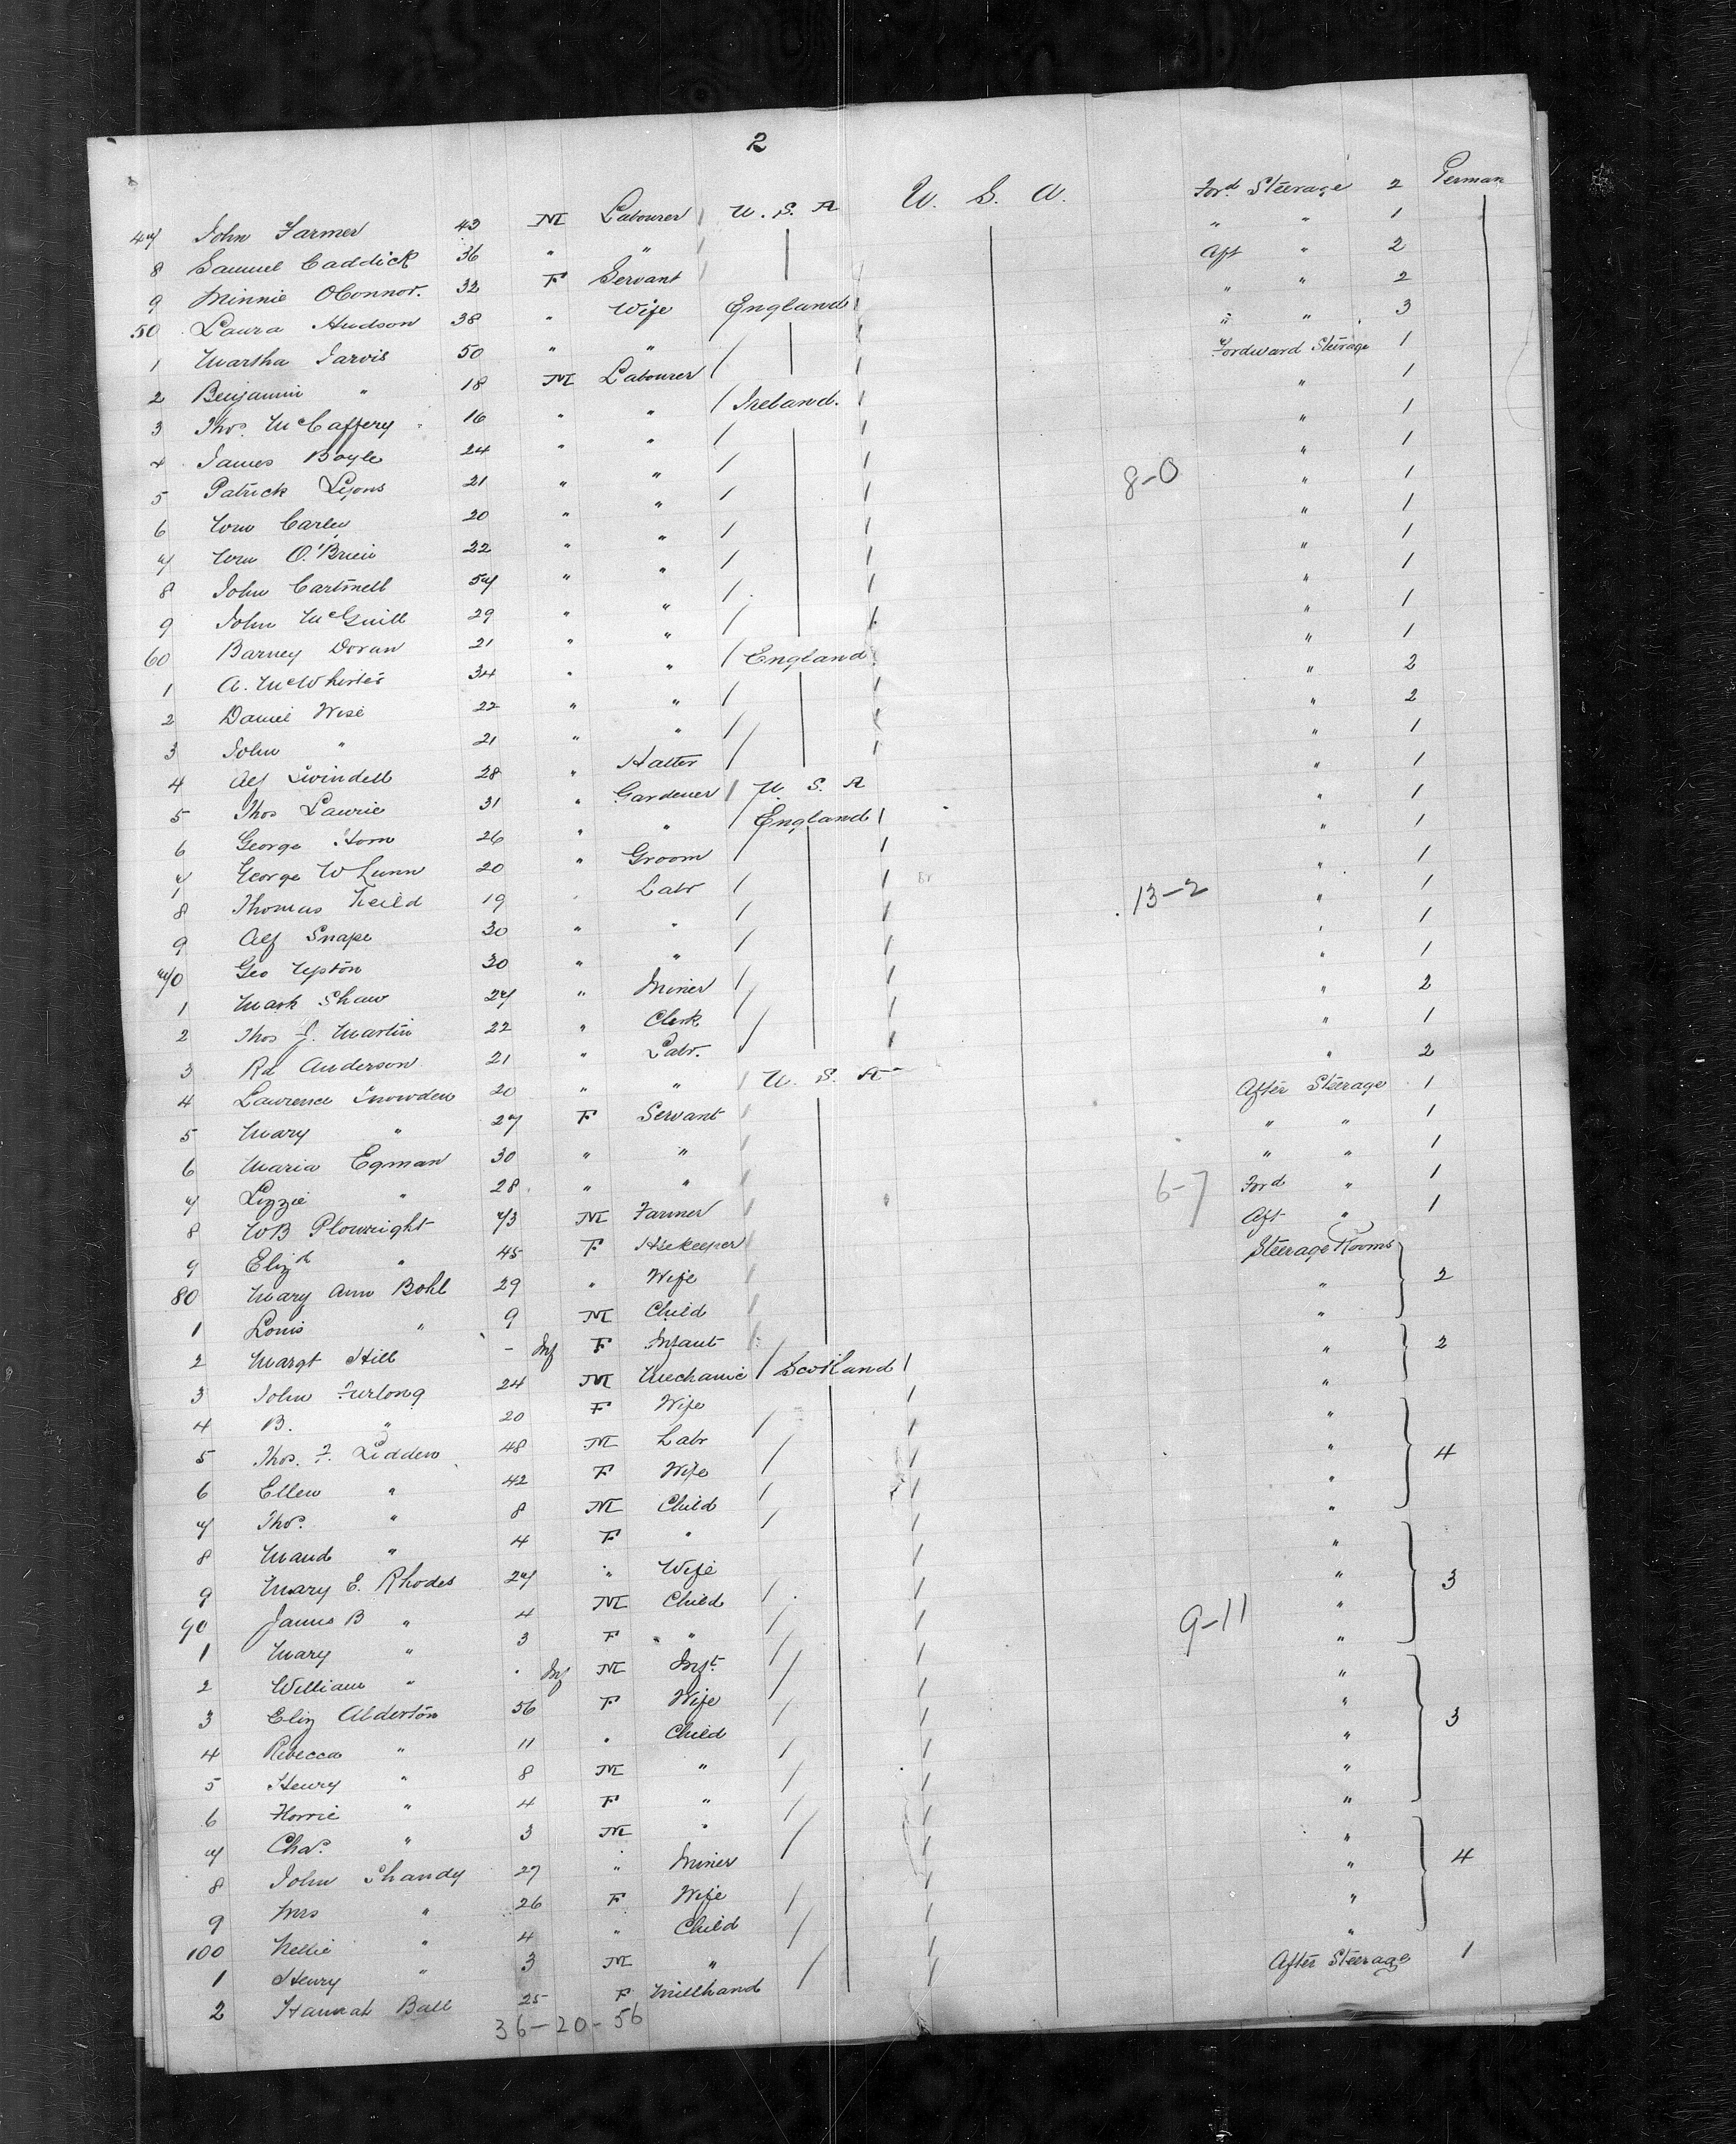 2
47 John Farmer 43 M Labourer U. S. A U. S. A. Ford Steerage 2 Perman
8 Samuel Caddick 36 " " " " 1
9 Minnie OConnor. 32 F Servant Aft " 2
50 Laura Hudson 38 " Wife England " " 2
1 Martha Jarvis 50 " " " " 3
2 Benjamin " 18 M Labourer Fordward Steerage 1
3 Thos. McCaffery 16 " " Ireland. " 1
4 James Boyle 24 " " " 1
5 Patrick Lyons 21 " " " 1
6 Wm Carley 20 " " 8-0 " 1
7 Wm O'Brien 22 " " " 1
8 John Cartmell 57 " " " 1
9 John McGuill 29 " " " 1
60 Barney Doran 21 " " " 1
1 A. McWhirter 34 " " England " 1
2 Daniel Wise 22 " " " 2
3 John " 21 " " " 2
4 Alf Swindell 28 " Hatter " 1
5 Thos Laurie 31 " Gardener U. S. A " 1
6 George Horn 26 " " England " 1
7 George W Lunn 20 " Groom " 1
8 Thomas Keild 19 " Labr " 1
9 Alf Snape 30 " " 13-2 " 1
70 Geo Upton 30 " " " 1
1 Mark Shaw 27 " Miner " 1
2 Thos J. Martin 22 " Clerk " 2
3 Rd Anderson 21 " Labr. " 1
4 Lawrence Snowden 20 " " U. S. A " 2
5 Mary " 27 F Servant After Steerage 1
6 Maria Egman 30 " " " " 1
7 Lizzie " 28 " " " " 1
8 WB Plowright 73 M Farmer 6-7 Ford " 1
9 Elizh " 45 F Hsekeeper Aft " 1
80 Mary Ann Bohl 29 " Wife Steerage Rooms 2
1 Louis " 9 M Child "
2 Margt Hill - Inf F Infant "
3 John Furlong 24 M Mechanic Scotland " 2
4 B. " 20 F Wife "
5 Thos. F. Lidden 48 M Labr " 4
6 Ellen " 42 F Wife "
7 Thos. " 8 M Child "
8 Maud " 4 F " "
9 Mary E. Rhodes 27 " Wife " 3
90 James B " 4 M Child "
1 Mary " 3 F " 9-11 "
2 William " Inf M Inft "
3 Eliz Alderton 56 F Wife " 3
4 Rebecca " 11 " Child "
5 Henry " 8 M " "
6 Florrie " 4 F " "
7 Chas. " 3 M " "
8 John Shandy 27 " Miner " 4
9 Mrs " 26 F Wife "
100 Nellie " 4 " Child "
1 Henry " 3 M " "
2 Hannah Ball 25 F Millhand After Steerage 1
36-20-56